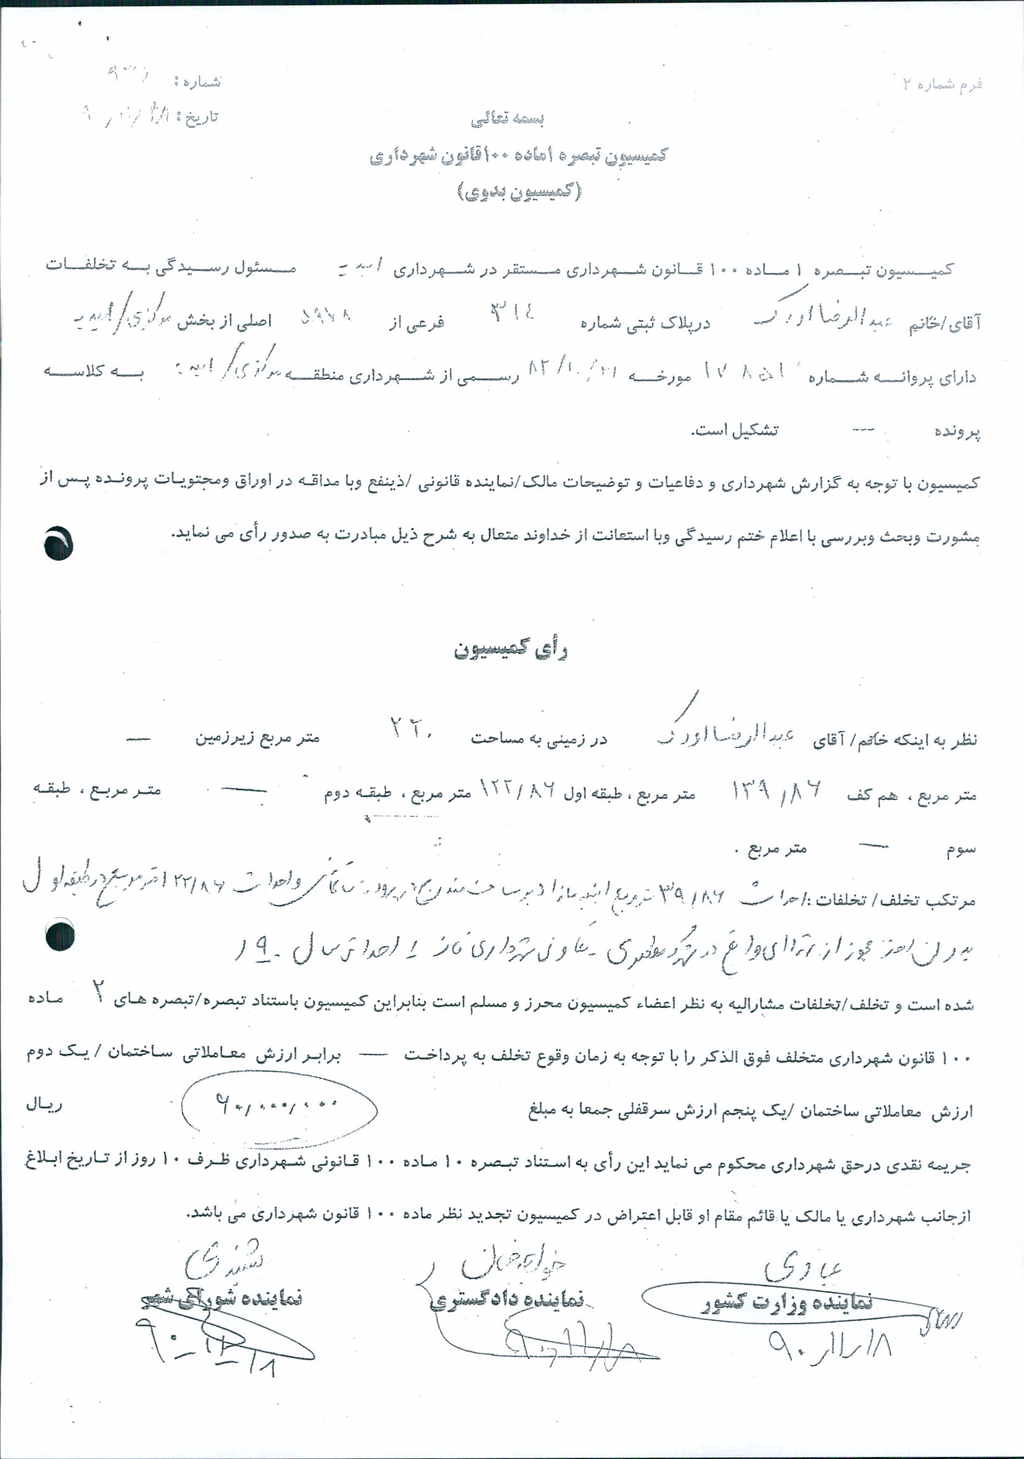 فرم شماره ۲
شماره :
تاریخ :
بسمه تعالی
کمیسیون تبصره ۱ماده ۱۰۰قانون شهرداری
(کمیسیون بدوی)
کمیسیون تبصره ۱ ماده ۱۰۰ قانون شهرداری مستقر در شهرداری مسئول رسیدگی به تخلفات
آقای/خانم عبدالرضا درپلاک ثبتی شماره ۳۱۴ فرعی از اصلی از بخش مرکزی/
دارای پروانه شماره ۱۷۸۵۱ مورخه رسمی از شهرداری منطقه مرکزی/ به کلاسه
پرونده --- تشکیل است.
کمیسیون با توجه به گزارش شهرداری و دفاعیات و توضیحات مالک/نماینده قانونی /ذینفع وبا مداقه در اوراق ومجتویات پرونده پس از
مشورت وبحث وبررسی با اعلام ختم رسیدگی وبا استعانت از خداوند متعال به شرح ذیل مبادرت به صدور رأی می نماید.
رأی کمیسیون
نظر به اینکه خانم/ آقای عبدالرضا در زمینی به مساحت ۲۲۰ متر مربع زیرزمین —
متر مربع ، هم کف ۱۳۹/۸۶ متر مربع ، طبقه اول ۱۲۲/۸۶ متر مربع ، طبقه دوم — متر مربع ، طبقه
سوم — متر مربع .
مرتکب تخلف/ تخلفات : احداث ۳۹/۸۶ متر مربع مازاد بر مساحت مندرج در پروانه و احداث ۱۲۲/۸۶ متر مربع در طبقه اول
بدون اخذ مجوز از شهرداری واقع در شهرک تعاونی شهرداری احداثی سال ۹۰
شده است و تخلف/تخلفات مشارالیه به نظر اعضاء کمیسیون محرز و مسلم است بنابراین کمیسیون باستناد تبصره/تبصره های ۲ ماده
۱۰۰ قانون شهرداری متخلف فوق الذکر را با توجه به زمان وقوع تخلف به پرداخت — برابر ارزش معاملاتی ساختمان / یک دوم
ارزش معاملاتی ساختمان /یک پنجم ارزش سرقفلی جمعا به مبلغ ۶۰,۰۰۰,۰۰۰ ریال
جریمه نقدی درحق شهرداری محکوم می نماید این رأی به استناد تبصره ۱۰ ماده ۱۰۰ قانونی شهرداری ظرف ۱۰ روز از تاریخ ابلاغ
ازجانب شهرداری یا مالک یا قائم مقام او قابل اعتراض در کمیسیون تجدید نظر ماده ۱۰۰ قانون شهرداری می باشد.
عبادی
نماینده وزارت کشور نماینده دادگستری نماینده شورای شهر
۹۰/۱۱/۸ ۹۰/۱۱/۸ ۹۰-۱۱-۸